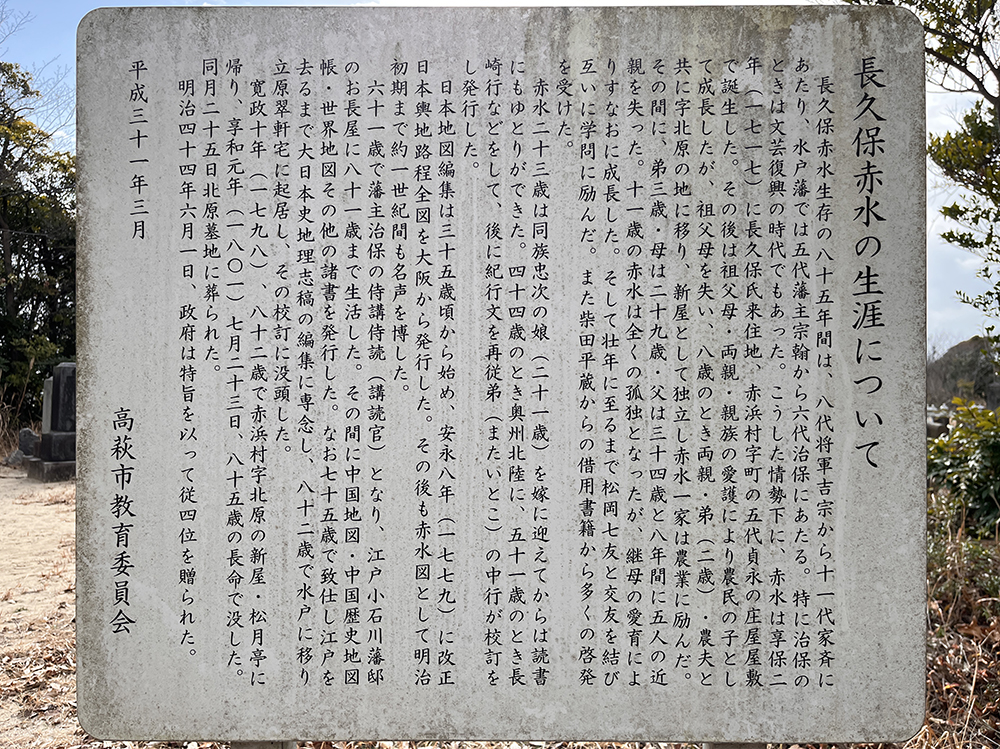 長久保赤水の生涯について
長久保赤水生存の八十五年間は、八代将軍吉宗から十一代家斉に
あたり、水戸藩では五代藩主宗翰から六代治保にあたる。特に治保の
ときは文芸復興の時代でもあった。こうした情勢下に、赤水は享保二
年（一七一七）に長久保氏来住地、赤浜村字町の五代貞永の庄屋屋敷
で誕生した。その後は祖父母・両親・親族の愛護により農民の子とし
て成長したが、祖父母を失い、八歳のとき両親・弟（二歳）・農夫と
共に字北原の地に移り、新屋として独立し赤水一家は農業に励んだ。
その間に、弟三歳・母は二十九歳・父は三十四歳と八年間に五人の近
親を失った。十一歳の赤水は全くの孤独となったが、継母の愛育によ
りすなおに成長した。そして壮年に至るまで松岡七友と交友を結び
互いに学問に励んだ。また柴田平蔵からの借用書籍から多くの啓発
を受けた。
赤水二十三歳は同族忠次の娘（二十一歳）を嫁に迎えてからは読書
にもゆとりができた。四十四歳のとき奥州北陸に、五十一歳のとき長
崎行などをして、後に紀行文を再従弟（またいとこ）の中行が校訂を
し発行した。
日本地図編集は三十五歳頃から始め、安永八年（一七七九）に改正
日本輿地路程全図を大阪から発行した。その後も赤水図として明治
初期まで約一世紀間も名声を博した。
六十一歳で藩主治保の侍講侍読（講読官）となり、江戸小石川藩邸
のお長屋に八十一歳まで生活した。その間に中国地図・中国歴史地図
帳・世界地図その他の諸書を発行した。なお七十五歳で致仕し江戸を
去るまで大日本史地理志稿の編集に専念し、八十二歳で水戸に移り
立原翠軒宅に起居し、その校訂に没頭した。
寛政十年（一七九八）、八十二歳で赤浜村字北原の新屋・松月亭に
帰り、享和元年（一八〇一）七月二十三日、八十五歳の長命で没した。
同月二十五日北原墓地に葬られた。
明治四十四年六月一日、政府は特旨を以って従四位を贈られた。
平成三十一年三月
高萩市教育委員会